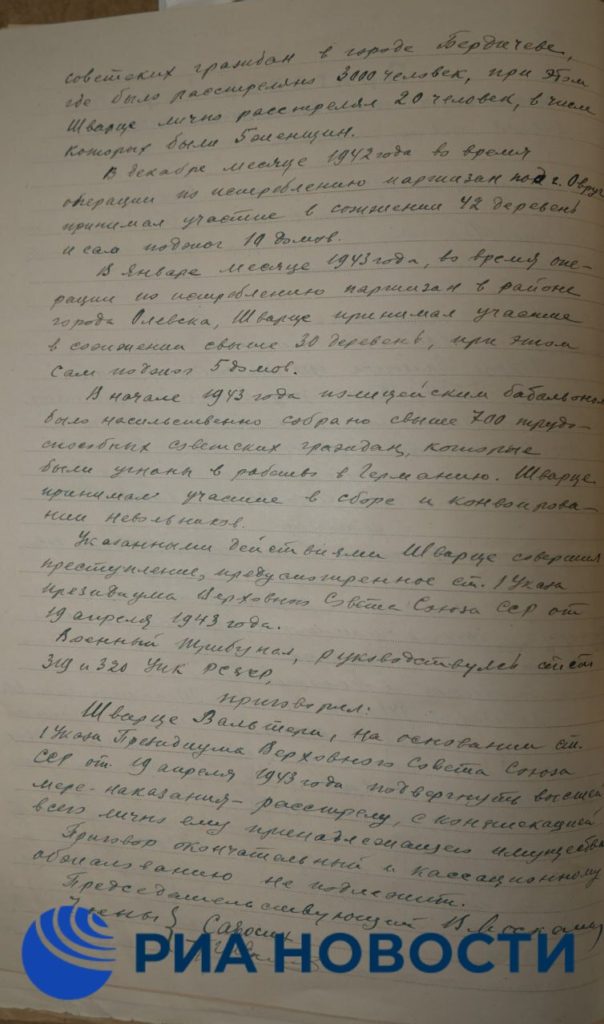 советских граждан в городе Бердичеве,
где было расстреляно 3000 человек, при этом
Шварце лично расстрелял 20 человек, в числе
которых были 5 женщин.
В декабре месяце 1942 года во время
операции по истреблению партизан под г. Овруч
принимал участие в сожжении 42 деревень
и сам поджог 19 домов.
В январе месяце 1943 года, во время опе-
рации по истреблению партизан в районе
города Олевска, Шварце принимал участие
в сожжении свыше 30 деревень, при этом
сам поджог 5 домов.
В начале 1943 года полицейским батальоном
было насильственно собрано свыше 700 трудо-
способных советских граждан, которые
были угнаны в рабство в Германию. Шварце
принимал участие в сборе и конвоирова-
нии невольников.
Указанными действиями Шварце совершил
преступление, предусмотренное ст. 1 Указа
президиума Верховного Совета Союза ССР от
19 апреля 1943 года.
Военный Трибунал, руководствуясь ст.ст.
319 и 320 УПК РСФСР,
приговорил:
Шварце Вальтера, на основании ст.
1 Указа Президиума Верховного Совета Союза
ССР от 19 апреля 1943 года подвергнуть высшей
мере наказания – расстрелу, с конфискацией
всего лично ему принадлежащего имущества.
Приговор окончательный и кассационному
обжалованию не подлежит.
Председательствующий
Члены }
РИА НОВОСТИ